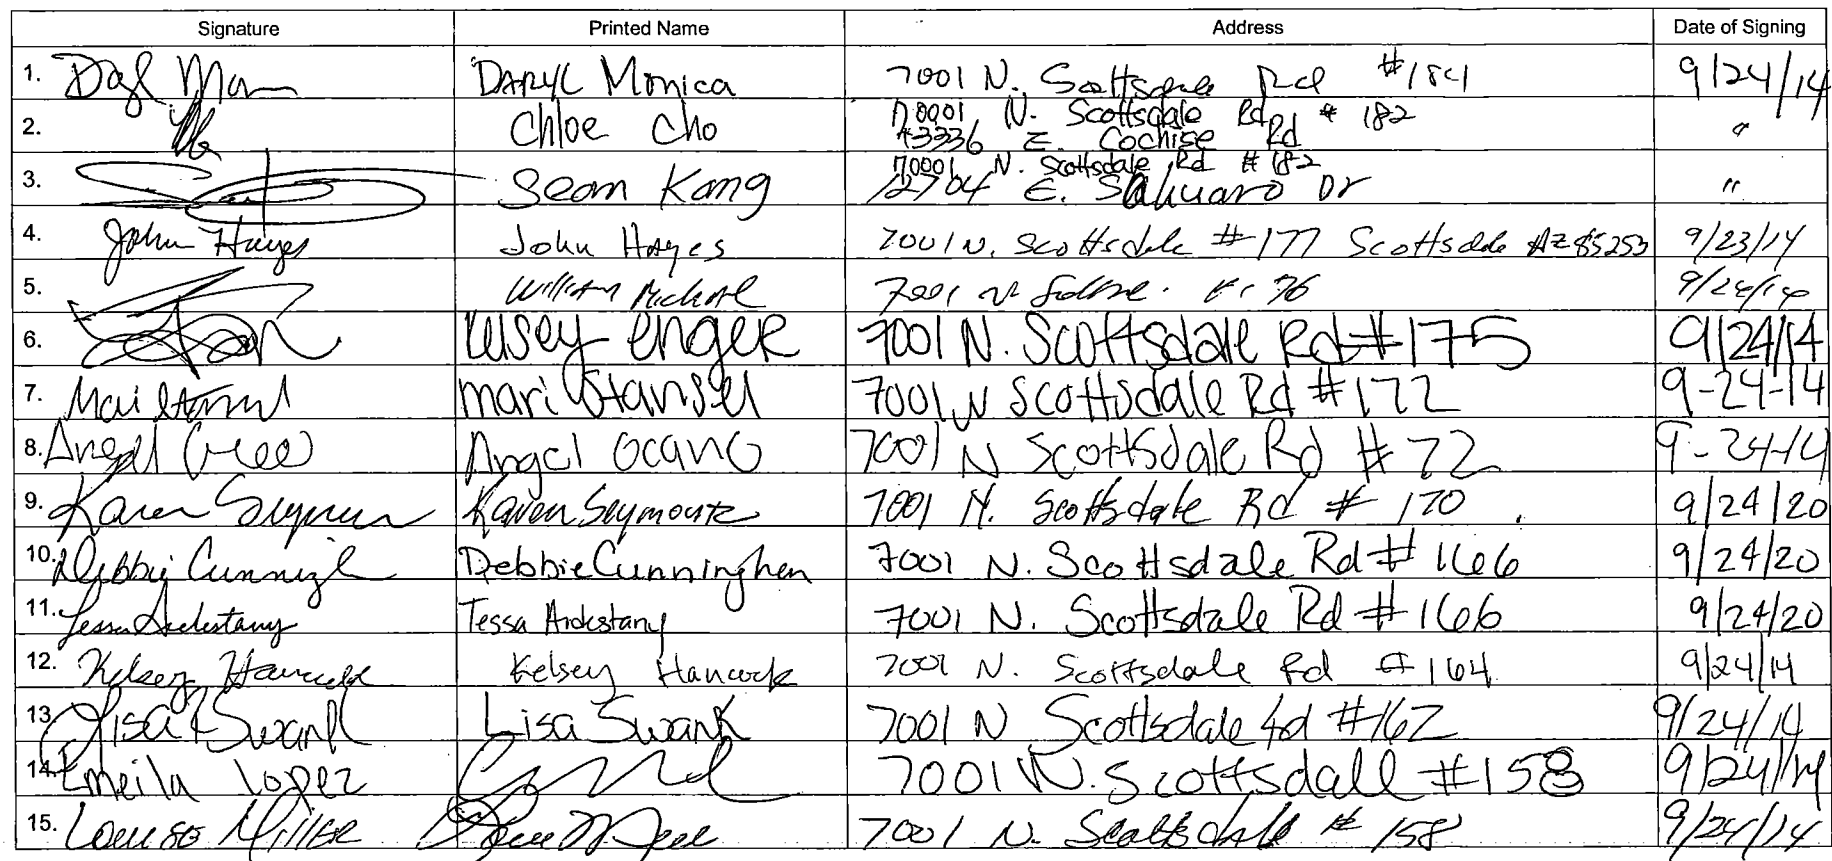 Signature Printed Name Address Date of Signing
1. Daryl Monica 7001 N. Scottsdale Rd #184 9/24/14
2. Chloe Cho 70001 N. Scottsdale Rd # 182
13336 E. Cochise Rd "
70001 N. Scottsdale Rd #182
3. Sean Kang 12704 E. Sahuaro Dr "
4. John Hayes John Hayes 7001 N. Scottsdale #177 Scottsdale AZ 85253 9/23/14
5. William Michael 7001 N 9/24/14
6. Kelsey Enger 7001 N. Scottsdale Rd #175 9/24/14
7. Mari Stansel 7001 N Scottsdale Rd #172 9-24-14
8. Angel Ocano 7001 N Scottsdale Rd #72 9-24-14
9. Karen Seymour Karen Seymour 7001 N. Scottsdale Rd # 170 9/24/20
10. Debbie Debbie Cunninghen 7001 N. Scottsdale Rd # 166 9/24/20
11. Tessa Ardestany Tessa Ardestany 7001 N. Scottsdale Rd # 166 9/24/20
12. Kelsey Hancock Kelsey Hancock 7001 N. Scottsdale Rd #164 9/24/14
13. Lisa Swank Lisa Swank 7001 N Scottsdale Rd #162 9/24/14
14. Emeila Lopez 7001 N. Scottsdall #158 9/24/14
15. Louise Miller 7001 N. Scottsdale # 158 9/24/14